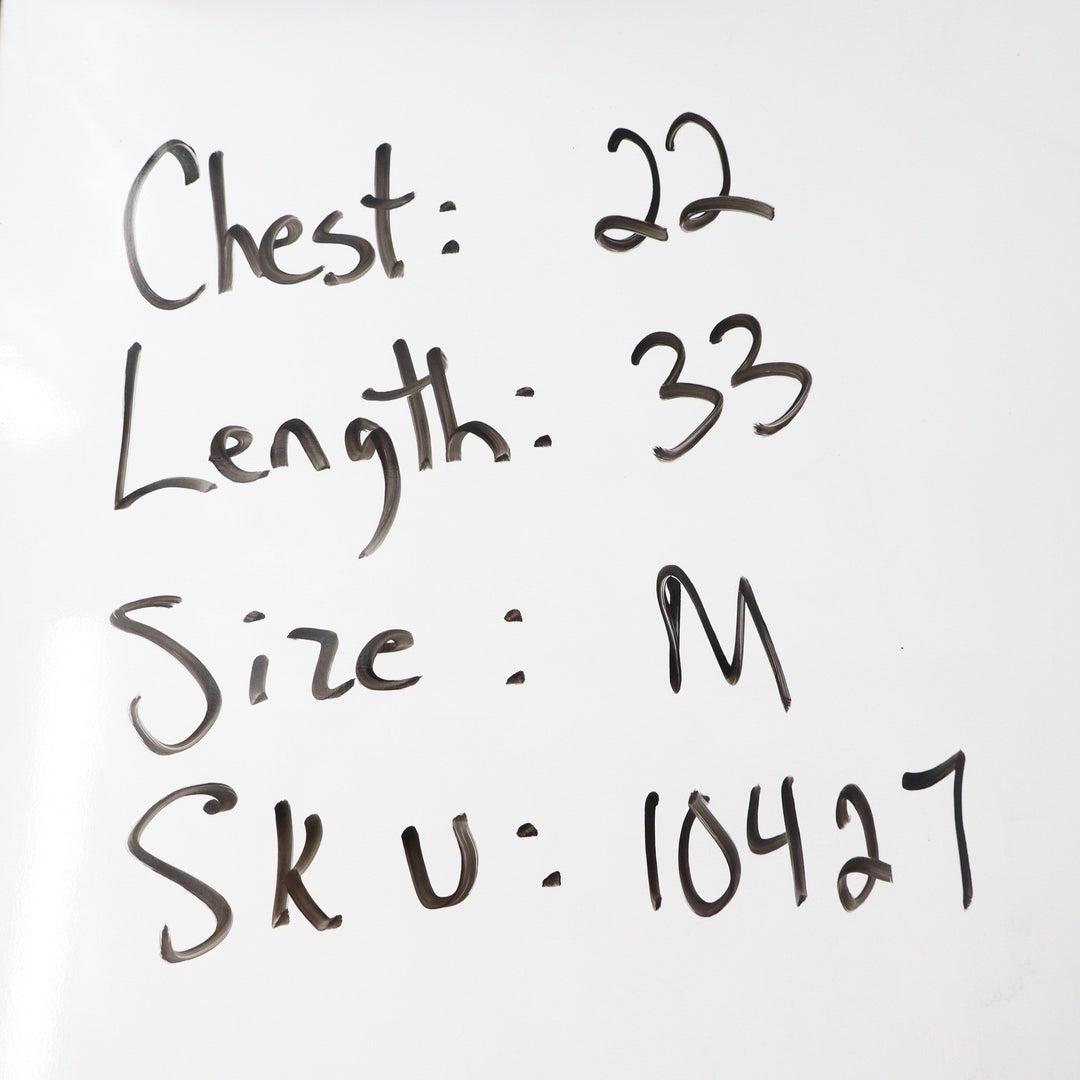 Chest: 22
Length: 33
Size: M
SKU: 10427